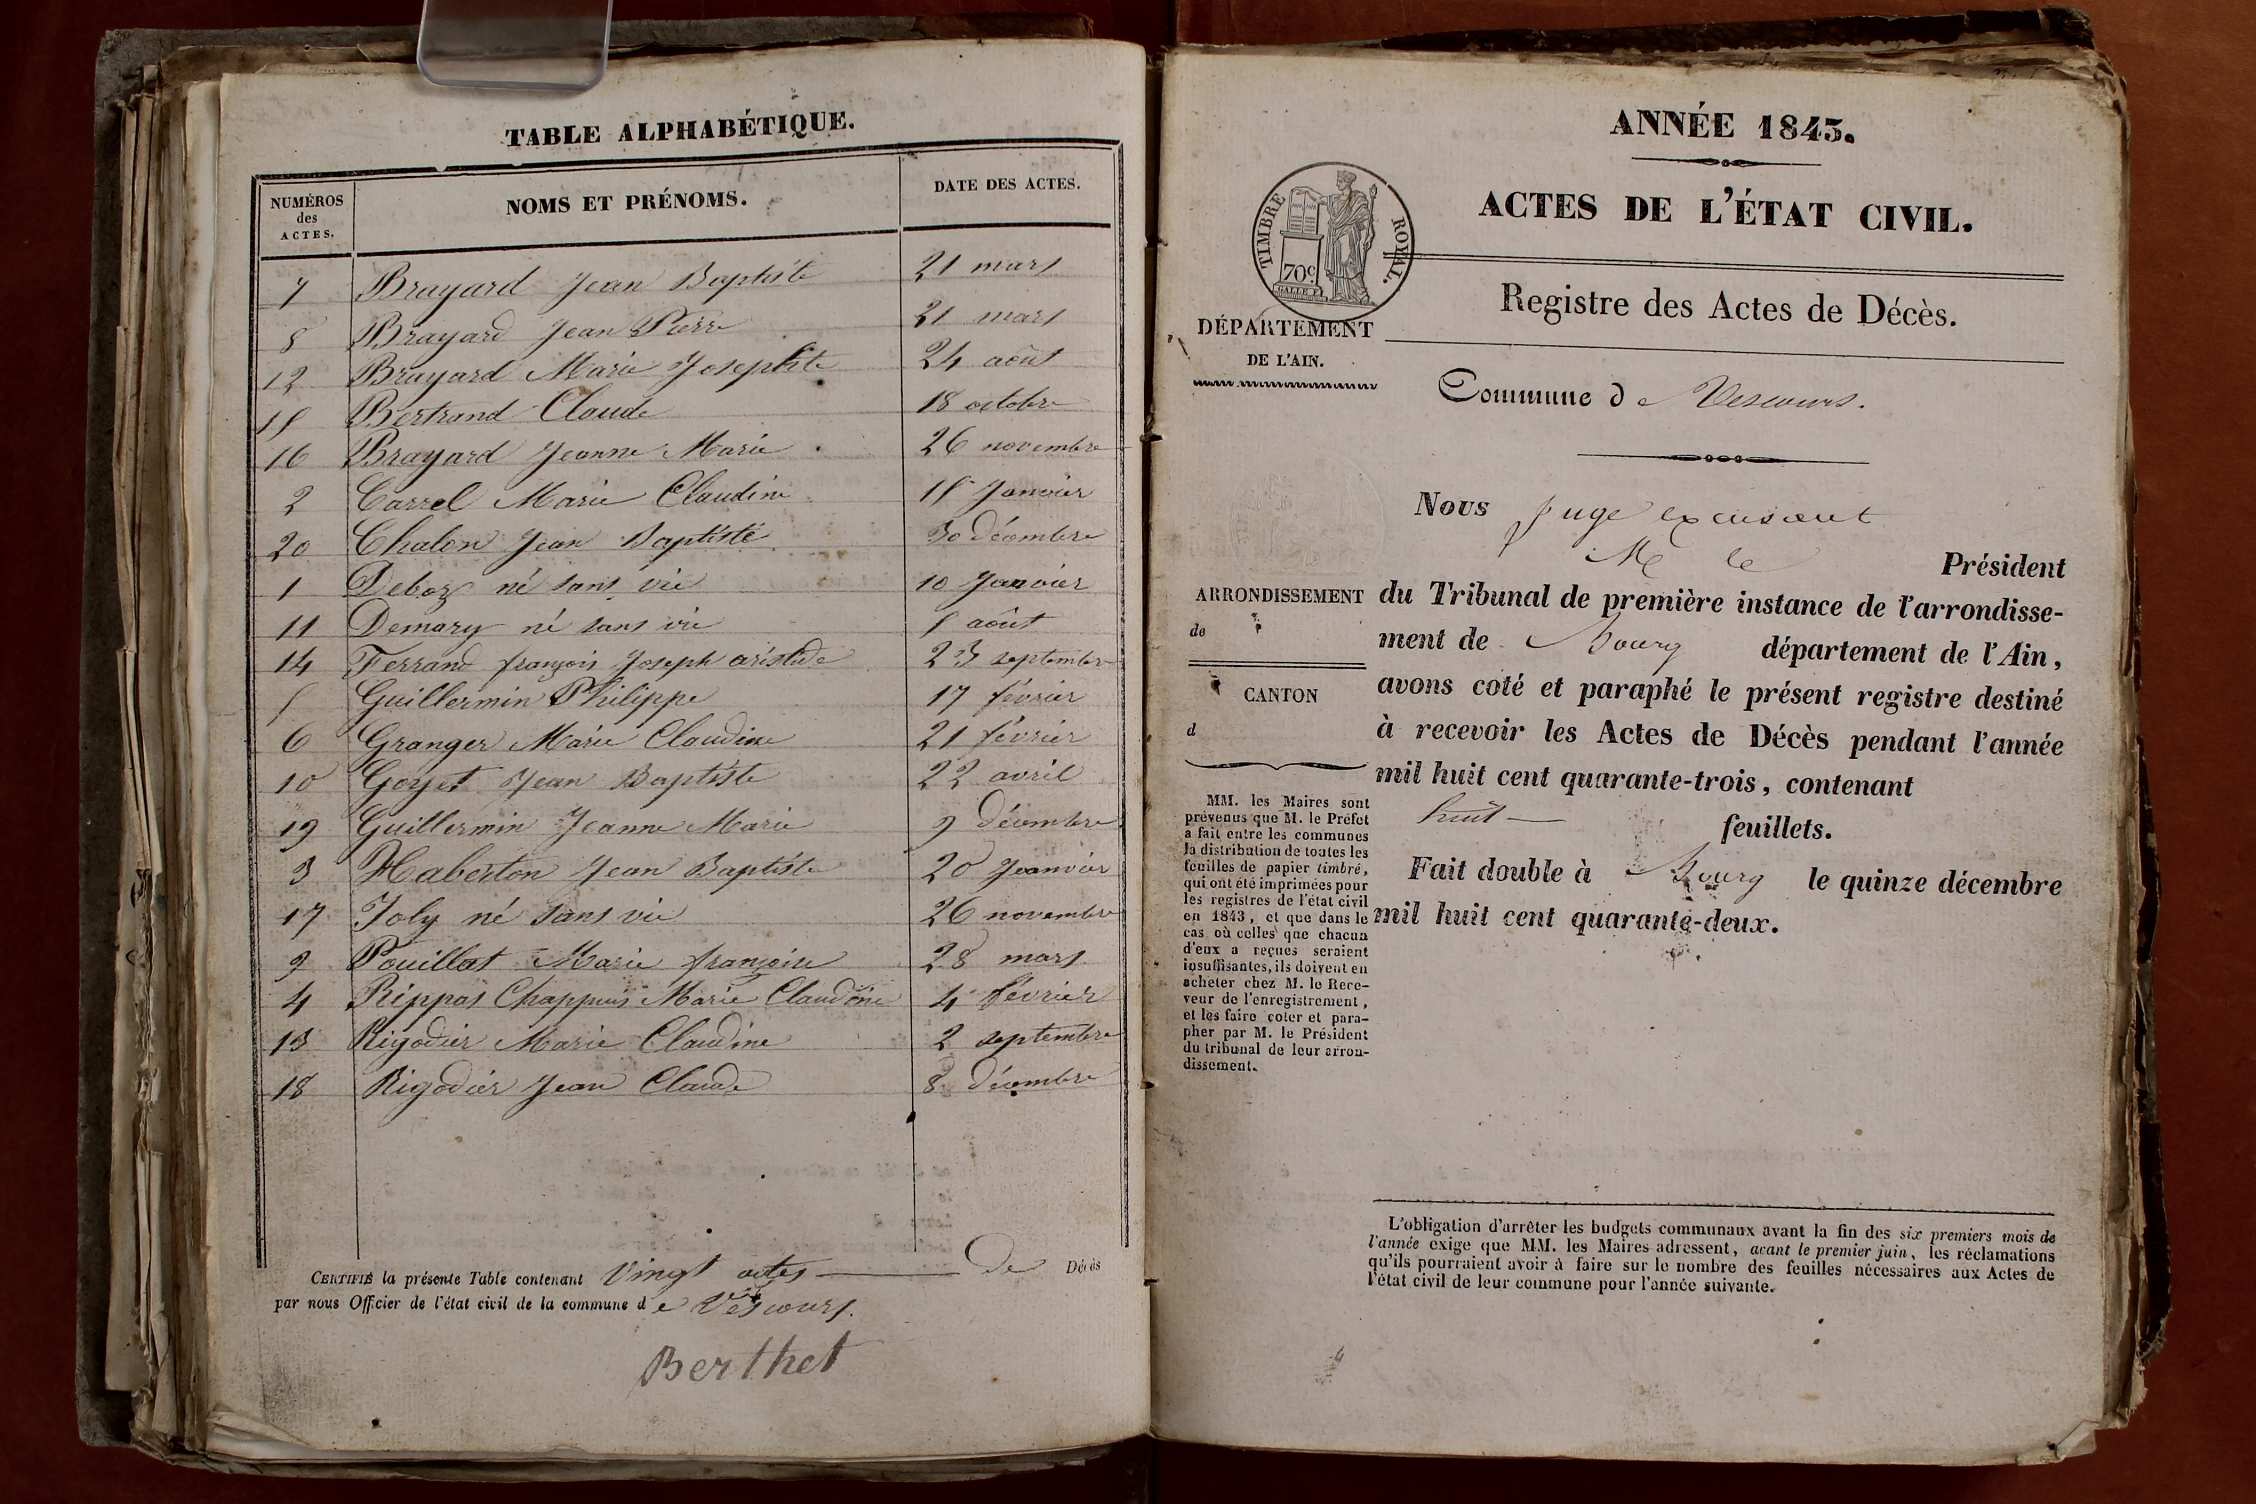 TABLE ALPHABÉTIQUE.
NUMÉROS des ACTES. NOMS ET PRÉNOMS. DATE DES ACTES.
7 Brayard Jean Baptiste 21 mars
8 Brayard Jean Pierre 21 mars
12 Brayard Marie Josephte 24 août
15 Bertrand Claude 18 octobre
16 Brayard Jeanne Marie 26 novembre
2 Carrel Marie Claudine 15 Janvier
20 Chalon Jean Baptiste 30 décembre
1 Deboz né sans vie 10 Janvier
11 Demary né sans vie 5 août
14 Ferrand françois Joseph aristide 23 septembre
5 Guillermin Philippe 17 février
6 Granger Marie Claudine 21 février
10 Goyet Jean Baptiste 22 avril
19 Guillermin Jeanne Marie 9 décembre
3 Haberton Jean Baptiste 20 Jeanvier
17 Joly né sans vie 26 novembre
9 Pouillat Marie françoise 28 mars
4 Rippas Chappuis Marie Claudine 4 février
13 Rigodier Marie Claudine 2 septembre
18 Rigodier Jean Claude 8 décembre
CERTIFIÉ la présente Table contenant Vingt actes de Décès
par nous Officier de l'état civil de la commune de Vescours.
Berthet
ANNÉE 1843.
ACTES DE L'ÉTAT CIVIL.
TIMBRE ROYAL.
70c
Registre des Actes de Décès.
DÉPARTEMENT
DE L'AIN.
Commune de Vescours.
Nous Juge excusant
M le Président
du Tribunal de première instance de l'arrondisse-
ment de Bourg département de l'Ain,
avons coté et paraphé le présent registre destiné
à recevoir les Actes de Décès pendant l'année
mil huit cent quarante-trois, contenant
huit feuillets.
Fait double à Bourg le quinze décembre
mil huit cent quarante-deux.
ARRONDISSEMENT
de
CANTON
d
MM. les Maires sont
prévenus que M. le Préfet
a fait entre les communes
la distribution de toutes les
feuilles de papier timbré,
qui ont été imprimées pour
les registres de l'état civil
en 1843, et que dans le
cas où celles que chacun
d'eux a reçues seraient
insuffisantes, ils doivent en
acheter chez M. le Rece-
veur de l'enregistrement,
et les faire coter et para-
pher par M. le Président
du tribunal de leur arron-
dissement.
L'obligation d'arrêter les budgets communaux avant la fin des six premiers mois de
l'année exige que MM. les Maires adressent, avant le premier juin, les réclamations
qu'ils pourraient avoir à faire sur le nombre des feuilles nécessaires aux Actes de
l'état civil de leur commune pour l'année suivante.